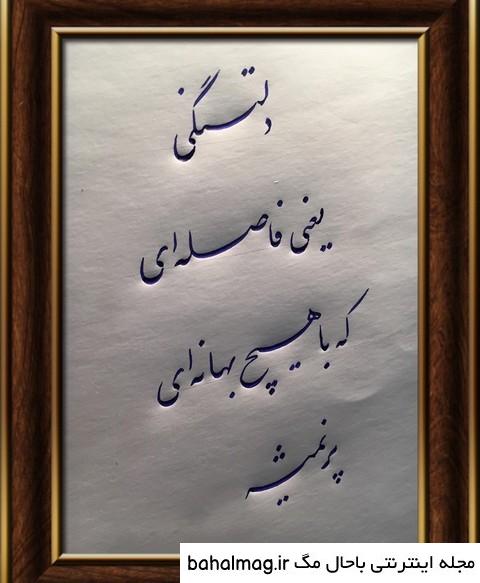 دلتنگی
یعنی فاصله‌ای
که با هیچ بهانه‌ای
پر نمیشه
مجله اینترنتی باحال مگ bahalmag.ir